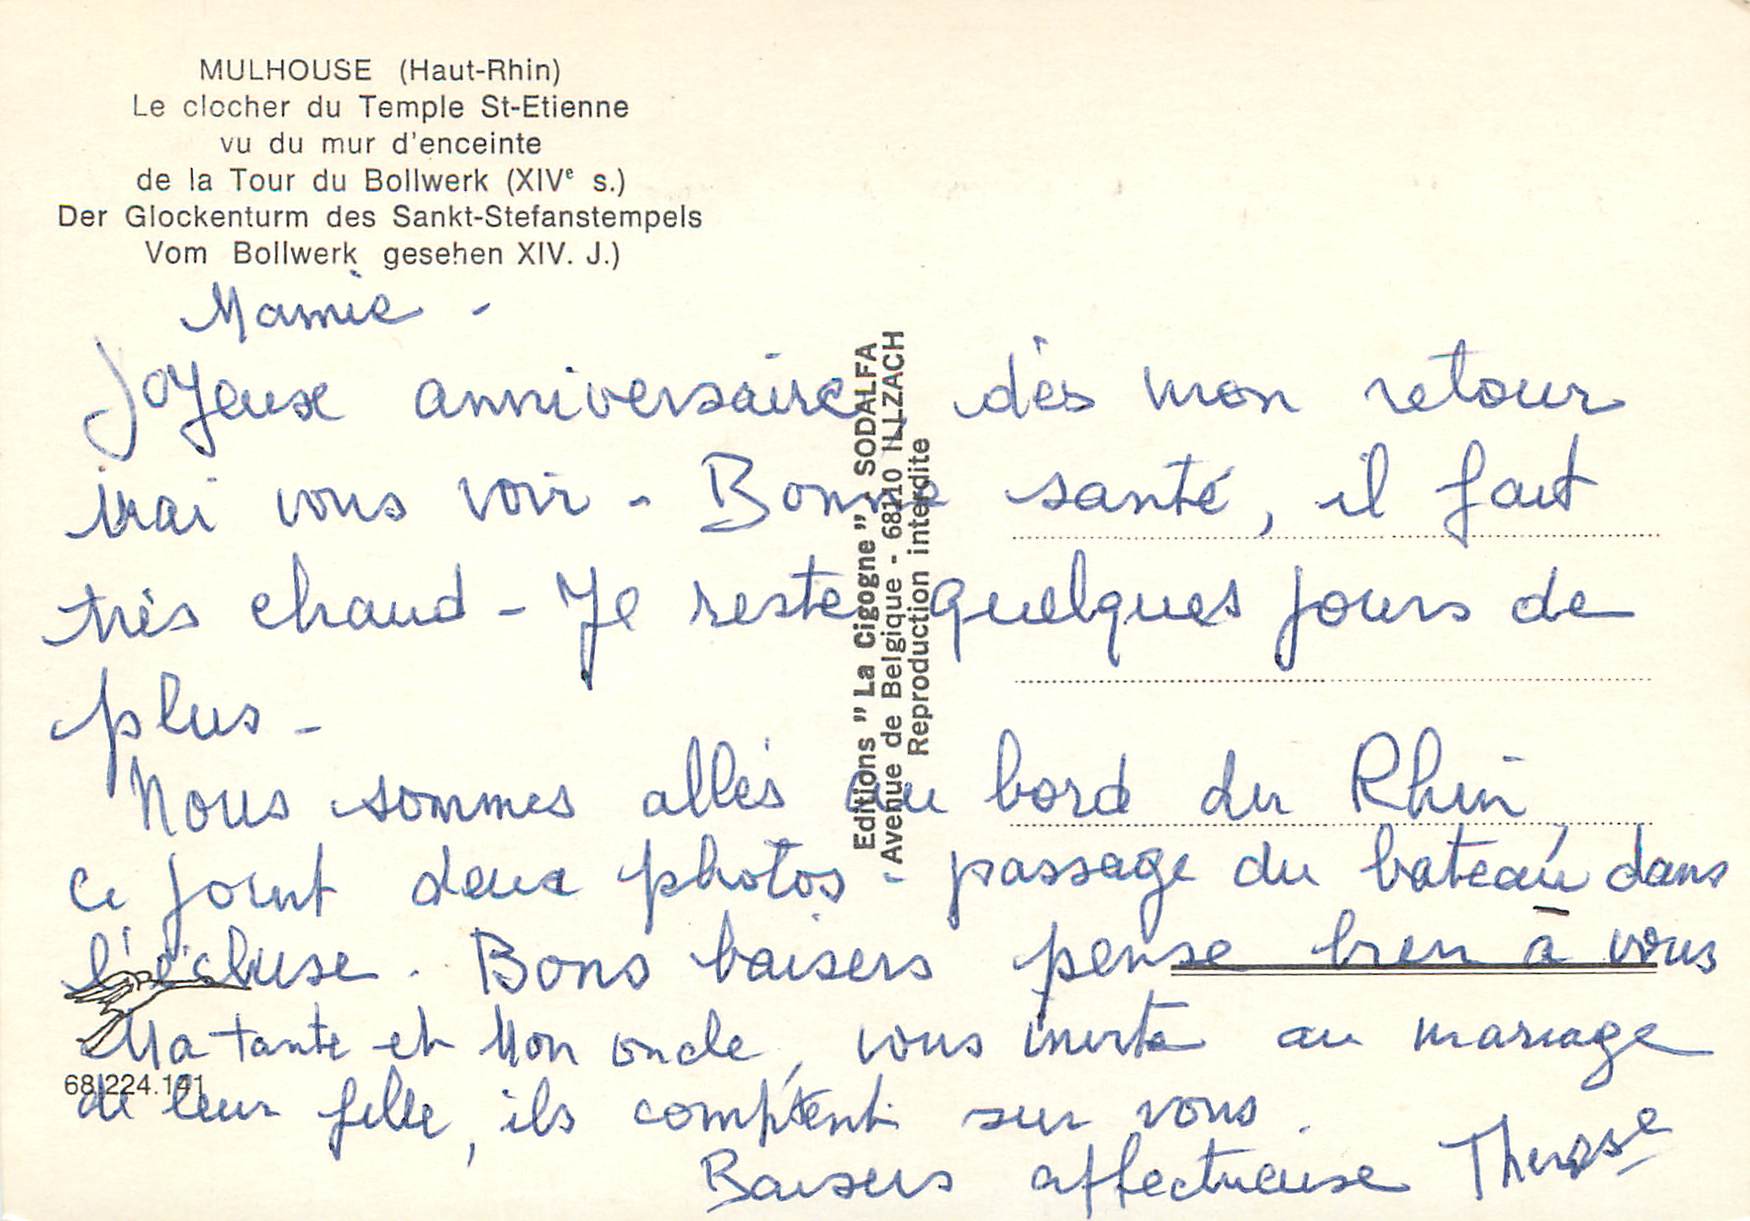 MULHOUSE (Haut-Rhin)
Le clocher du Temple St-Etienne
vu du mur d'enceinte
de la Tour du Bollwerk (XIVe s.)
Der Glockenturm des Sankt-Stefanstempels
Vom Bollwerk gesehen XIV. J.)
Mamie -
Joyeuse anniversaire, dès mon retour
irai vous voir - Bonne santé, il fait
très chaud - Je reste quelques jours de
plus -
Nous sommes allés au bord du Rhin
ci joint deux photos - passage du bateau dans
l'écluse. Bons baisers pense bien à vous
Ma tante et Mon oncle, vous invite au mariage
de leur fille, ils comptent sur vous.
Baisers affectueuse Therese
Editions "La Cigogne" - SODALFA
Avenue de Belgique - 68110 ILLZACH
Reproduction interdite
68.224.141